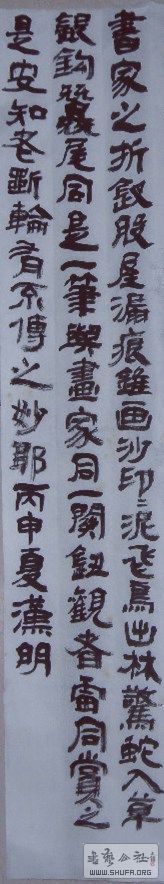 書家之折釵股屋漏痕錐画沙印〻泥飛鳥出林驚蛇入草
銀鈎蠆尾同是一筆與畫家同一関鈕觀者當同賞之
是安知老斲輪有不傳之妙耶丙申夏漢明
書藝公社
WWW.SHUFA.ORG